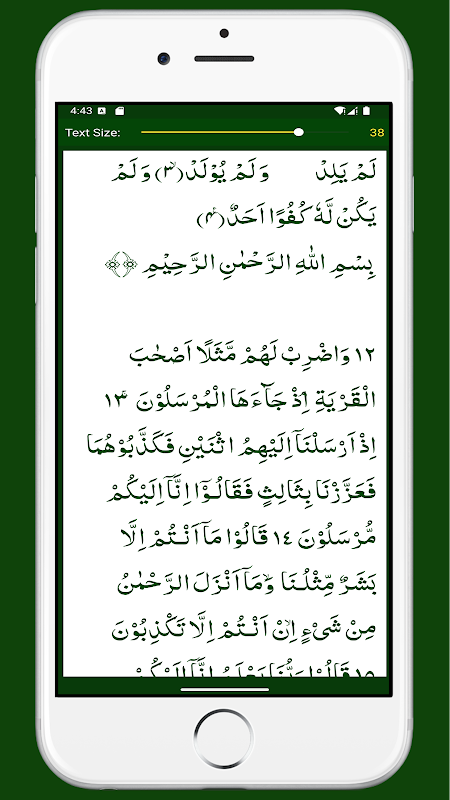 4:43
Text Size: 38
لَمْ يَلِدْ وَلَمْ يُوْلَدْ(۳ۙ) وَلَمْ
يَكُنْ لَّهٗ كُفُوًا اَحَدٌ(۴ۧ)
بِسْمِ اللّٰهِ الرَّحْمٰنِ الرَّحِيْمِ
۱۲ وَاضْرِبْ لَهُمْ مَّثَلًا اَصْحٰبَ
الْقَرْيَةِ اِذْ جَآءَهَا الْمُرْسَلُوْنَ ۱۳ۚ
اِذْ اَرْسَلْنَآ اِلَيْهِمُ اثْنَيْنِ فَكَذَّبُوْهُمَا
فَعَزَّزْنَا بِثَالِثٍ فَقَالُوْٓا اِنَّآ اِلَيْكُمْ
مُّرْسَلُوْنَ ۱٤ قَالُوْا مَآ اَنْتُمْ اِلَّا
بَشَرٌ مِّثْلُنَا ۙ وَمَآ اَنْزَلَ الرَّحْمٰنُ
مِنْ شَيْءٍ ۙ اِنْ اَنْتُمْ اِلَّا تَكْذِبُوْنَ
۱۵ قَالُوْا رَبُّنَا يَعْلَمُ اِنَّآ اِلَيْكُمْ